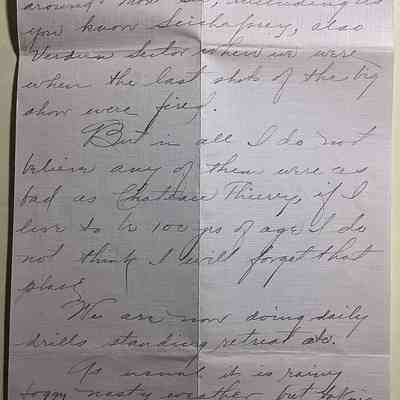 around
you know Seicheprey, also
Verdun Sector where we were
when the last shots of the big
show were fired.
But in all I do not
believe any of them were as
bad as Chateau Thierry, if I
live to be 100 yrs of age I do
not think I will forget that
place.
We are now doing daily
drills standing retreat etc.
As usual it is rainy
foggy nasty weather but taking